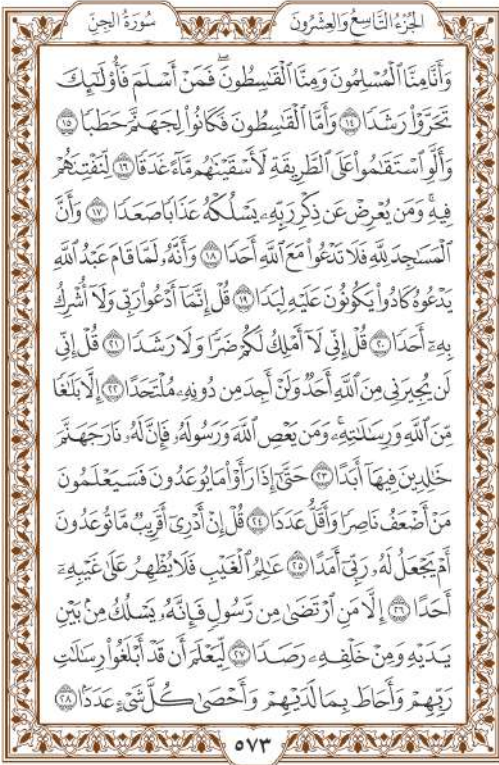 سُورَةُ الجِنِّ الجُزْءُ التَّاسِعُ وَالعِشْرُونَ
وَأَنَّا مِنَّا ٱلْمُسْلِمُونَ وَمِنَّا ٱلْقَٰسِطُونَۖ فَمَنْ أَسْلَمَ فَأُو۟لَٰٓئِكَ
تَحَرَّوْا۟ رَشَدًا ١٤ وَأَمَّا ٱلْقَٰسِطُونَ فَكَانُوا۟ لِجَهَنَّمَ حَطَبًا ١٥
وَأَلَّوِ ٱسْتَقَٰمُوا۟ عَلَى ٱلطَّرِيقَةِ لَأَسْقَيْنَٰهُم مَّآءً غَدَقًا ١٦ لِّنَفْتِنَهُمْ
فِيهِۚ وَمَن يُعْرِضْ عَن ذِكْرِ رَبِّهِۦ يَسْلُكْهُ عَذَابًا صَعَدًا ١٧ وَأَنَّ
ٱلْمَسَٰجِدَ لِلَّهِ فَلَا تَدْعُوا۟ مَعَ ٱللَّهِ أَحَدًا ١٨ وَأَنَّهُۥ لَمَّا قَامَ عَبْدُ ٱللَّهِ
يَدْعُوهُ كَادُوا۟ يَكُونُونَ عَلَيْهِ لِبَدًا ١٩ قُلْ إِنَّمَآ أَدْعُوا۟ رَبِّى وَلَآ أُشْرِكُ
بِهِۦٓ أَحَدًا ٢٠ قُلْ إِنِّى لَآ أَمْلِكُ لَكُمْ ضَرًّا وَلَا رَشَدًا ٢١ قُلْ إِنِّى
لَن يُجِيرَنِى مِنَ ٱللَّهِ أَحَدٌ وَلَنْ أَجِدَ مِن دُونِهِۦ مُلْتَحَدًا ٢٢ إِلَّا بَلَٰغًا
مِّنَ ٱللَّهِ وَرِسَٰلَٰتِهِۦۚ وَمَن يَعْصِ ٱللَّهَ وَرَسُولَهُۥ فَإِنَّ لَهُۥ نَارَ جَهَنَّمَ
خَٰلِدِينَ فِيهَآ أَبَدًا ٢٣ حَتَّىٰٓ إِذَا رَأَوْا۟ مَا يُوعَدُونَ فَسَيَعْلَمُونَ
مَنْ أَضْعَفُ نَاصِرًا وَأَقَلُّ عَدَدًا ٢٤ قُلْ إِنْ أَدْرِىٓ أَقَرِيبٌ مَّا تُوعَدُونَ
أَمْ يَجْعَلُ لَهُۥ رَبِّىٓ أَمَدًا ٢٥ عَٰلِمُ ٱلْغَيْبِ فَلَا يُظْهِرُ عَلَىٰ غَيْبِهِۦٓ
أَحَدًا ٢٦ إِلَّا مَنِ ٱرْتَضَىٰ مِن رَّسُولٍ فَإِنَّهُۥ يَسْلُكُ مِنۢ بَيْنِ
يَدَيْهِ وَمِنْ خَلْفِهِۦ رَصَدًا ٢٧ لِّيَعْلَمَ أَن قَدْ أَبْلَغُوا۟ رِسَٰلَٰتِ
رَبِّهِمْ وَأَحَاطَ بِمَا لَدَيْهِمْ وَأَحْصَىٰ كُلَّ شَىْءٍ عَدَدًۢا ٢٨
٥٧٣